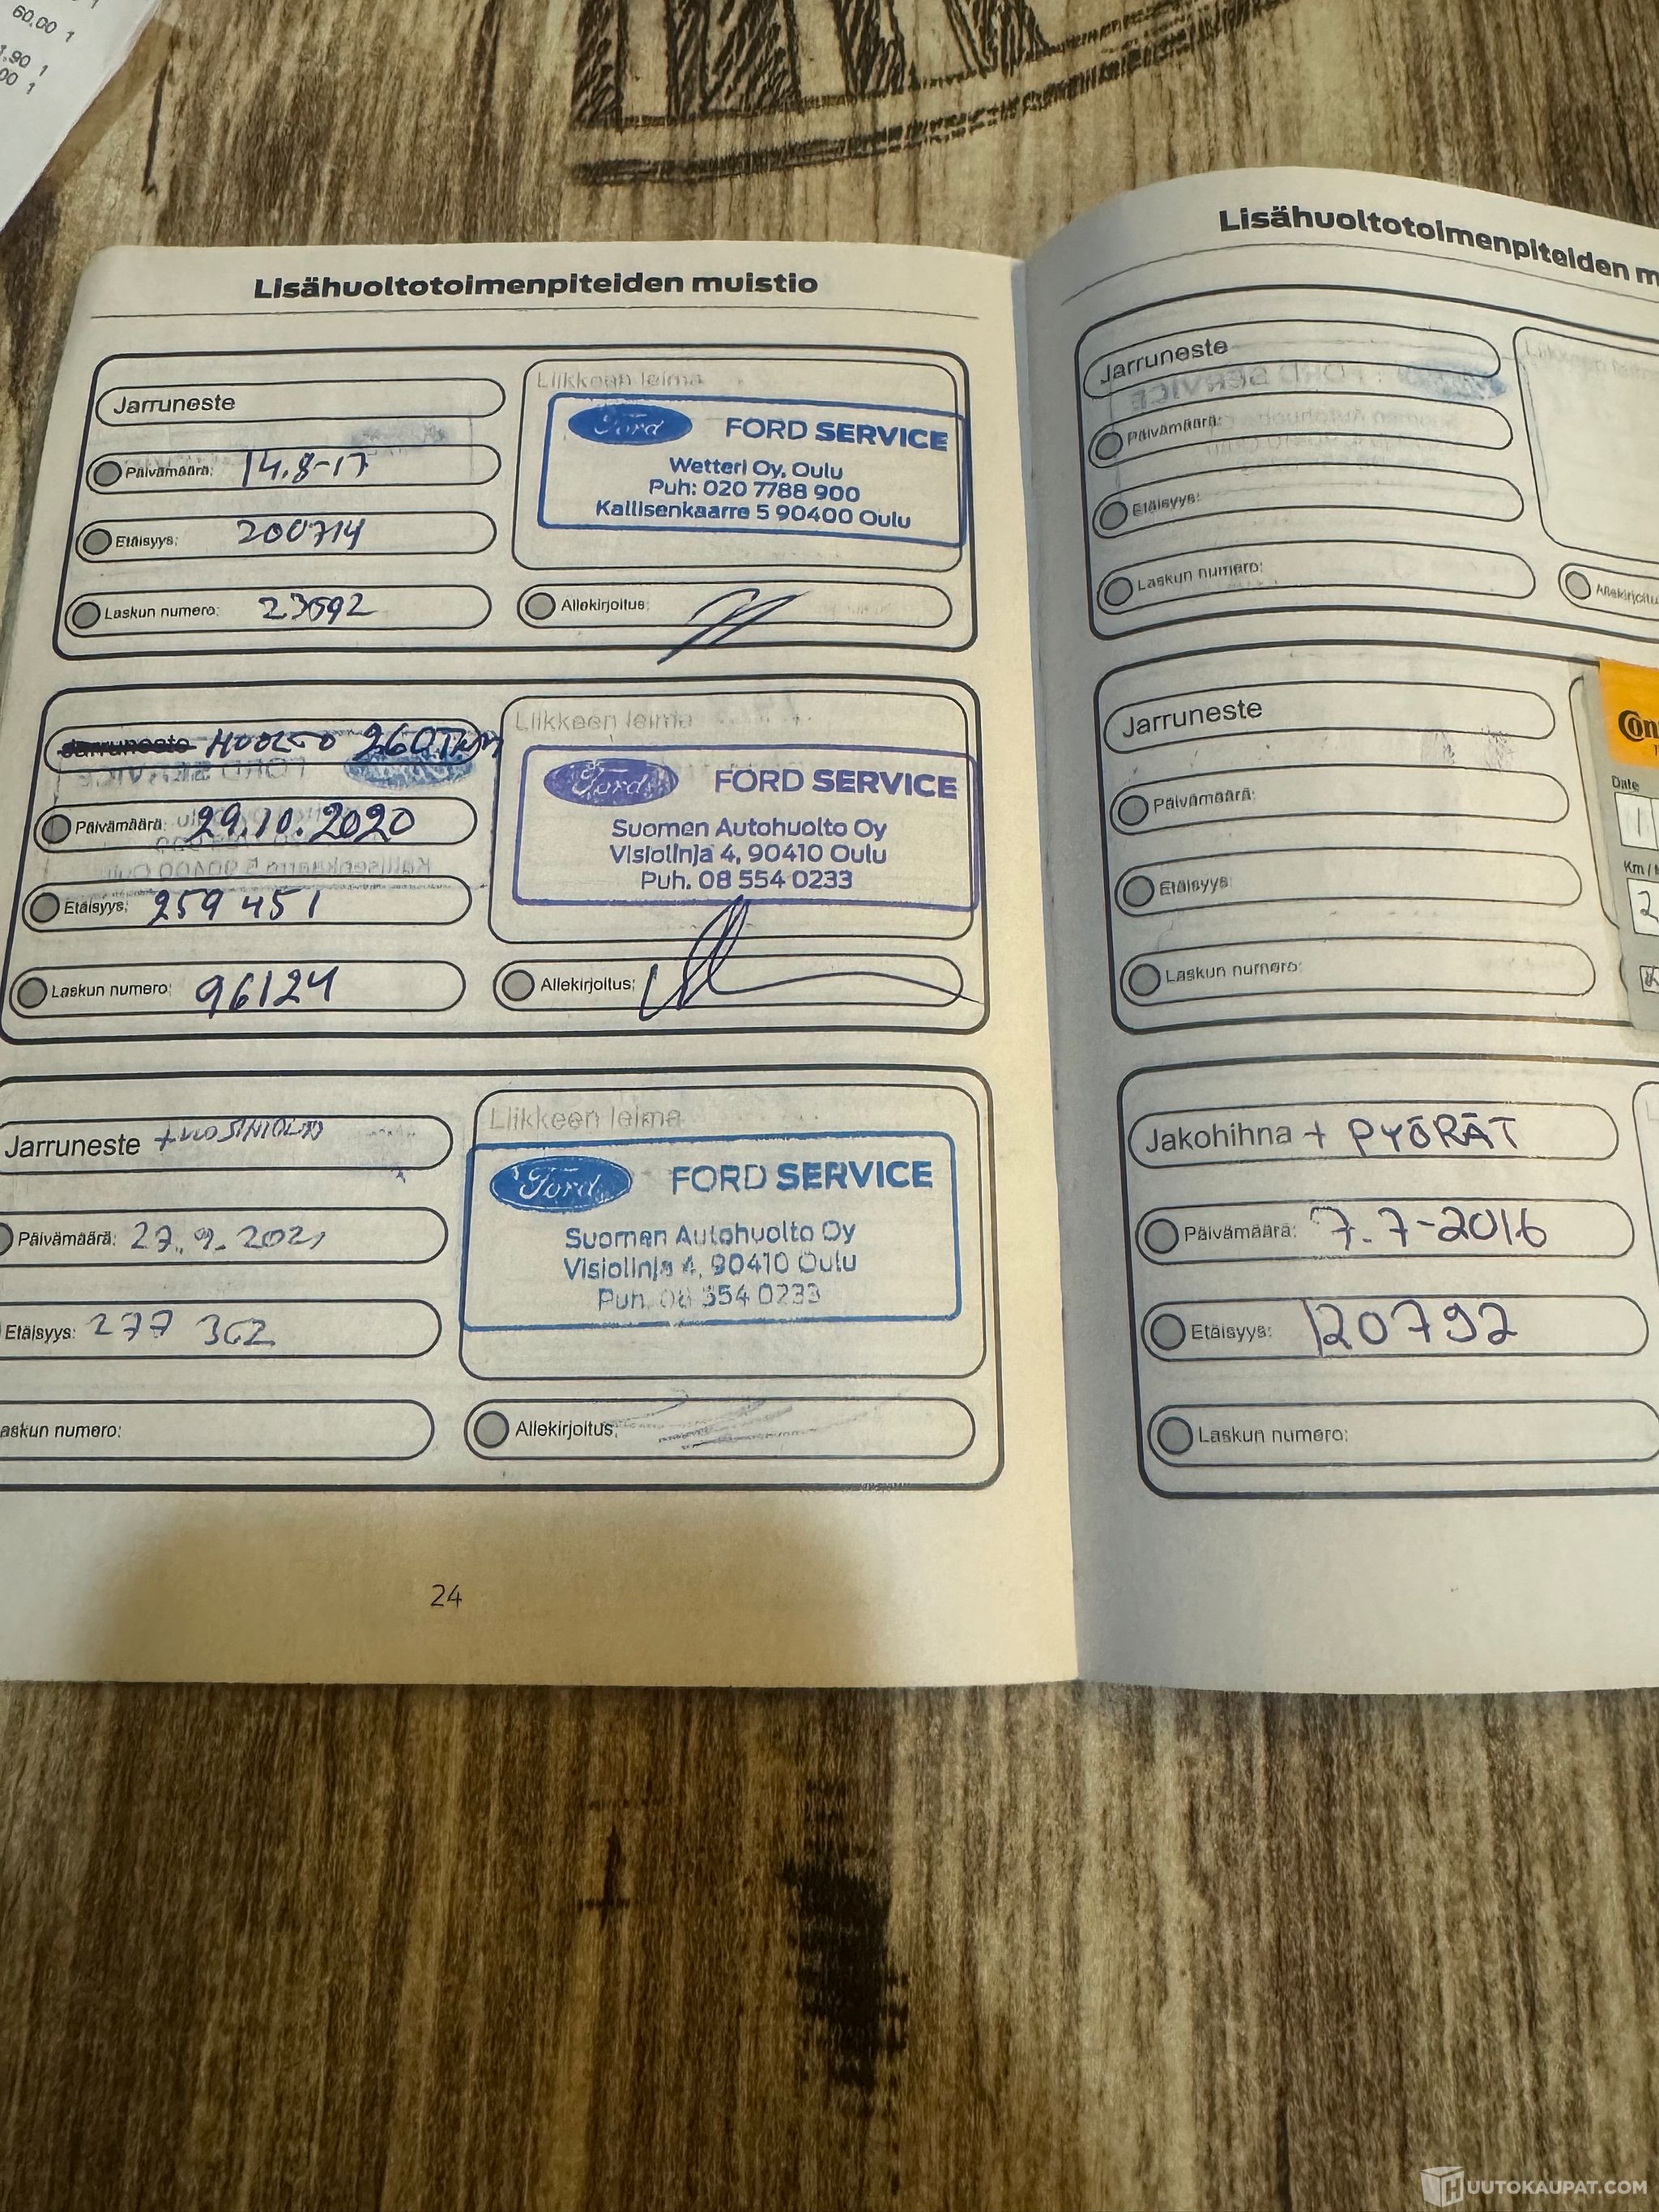 60,00 1
1.90 1
00 1
Lisähuoltotoimenpiteiden muistio
Jarruneste
Päivämäärä: 14.8-17
Etäisyys: 200714
Laskun numero: 23592
Liikkeen leima
Ford FORD SERVICE
Wetteri Oy, Oulu
Puh: 020 7788 900
Kallisenkaarre 5 90400 Oulu
Allekirjoitus:
Jarruneste HUOLTO 260TKM
Päivämäärä: 29.10.2020
Etäisyys: 259 451
Laskun numero: 96124
Liikkeen leima
Ford FORD SERVICE
Suomen Autohuolto Oy
Visiolinja 4, 90410 Oulu
Puh. 08 554 0233
Allekirjoitus:
Jarruneste
Päivämäärä: 27.9.2021
Etäisyys: 277 362
askun numero:
Liikkeen leima
Ford FORD SERVICE
Suomen Autohuolto Oy
Visiolinja 4, 90410 Oulu
Puh. 08 554 0233
Allekirjoitus:
24
Lisähuoltotoimenpiteiden m
Jarruneste
Päivämäärä:
Etäisyys:
Laskun numero:
Allekirjoitu
Jarruneste
Päivämäärä:
Etäisyys:
Laskun numero:
Con
Date
1
Km / M
2
Jakohihna + PYÖRÄT
Päivämäärä: 7.7-2016
Etäisyys: 120792
Laskun numero:
HUUTOKAUPAT.COM